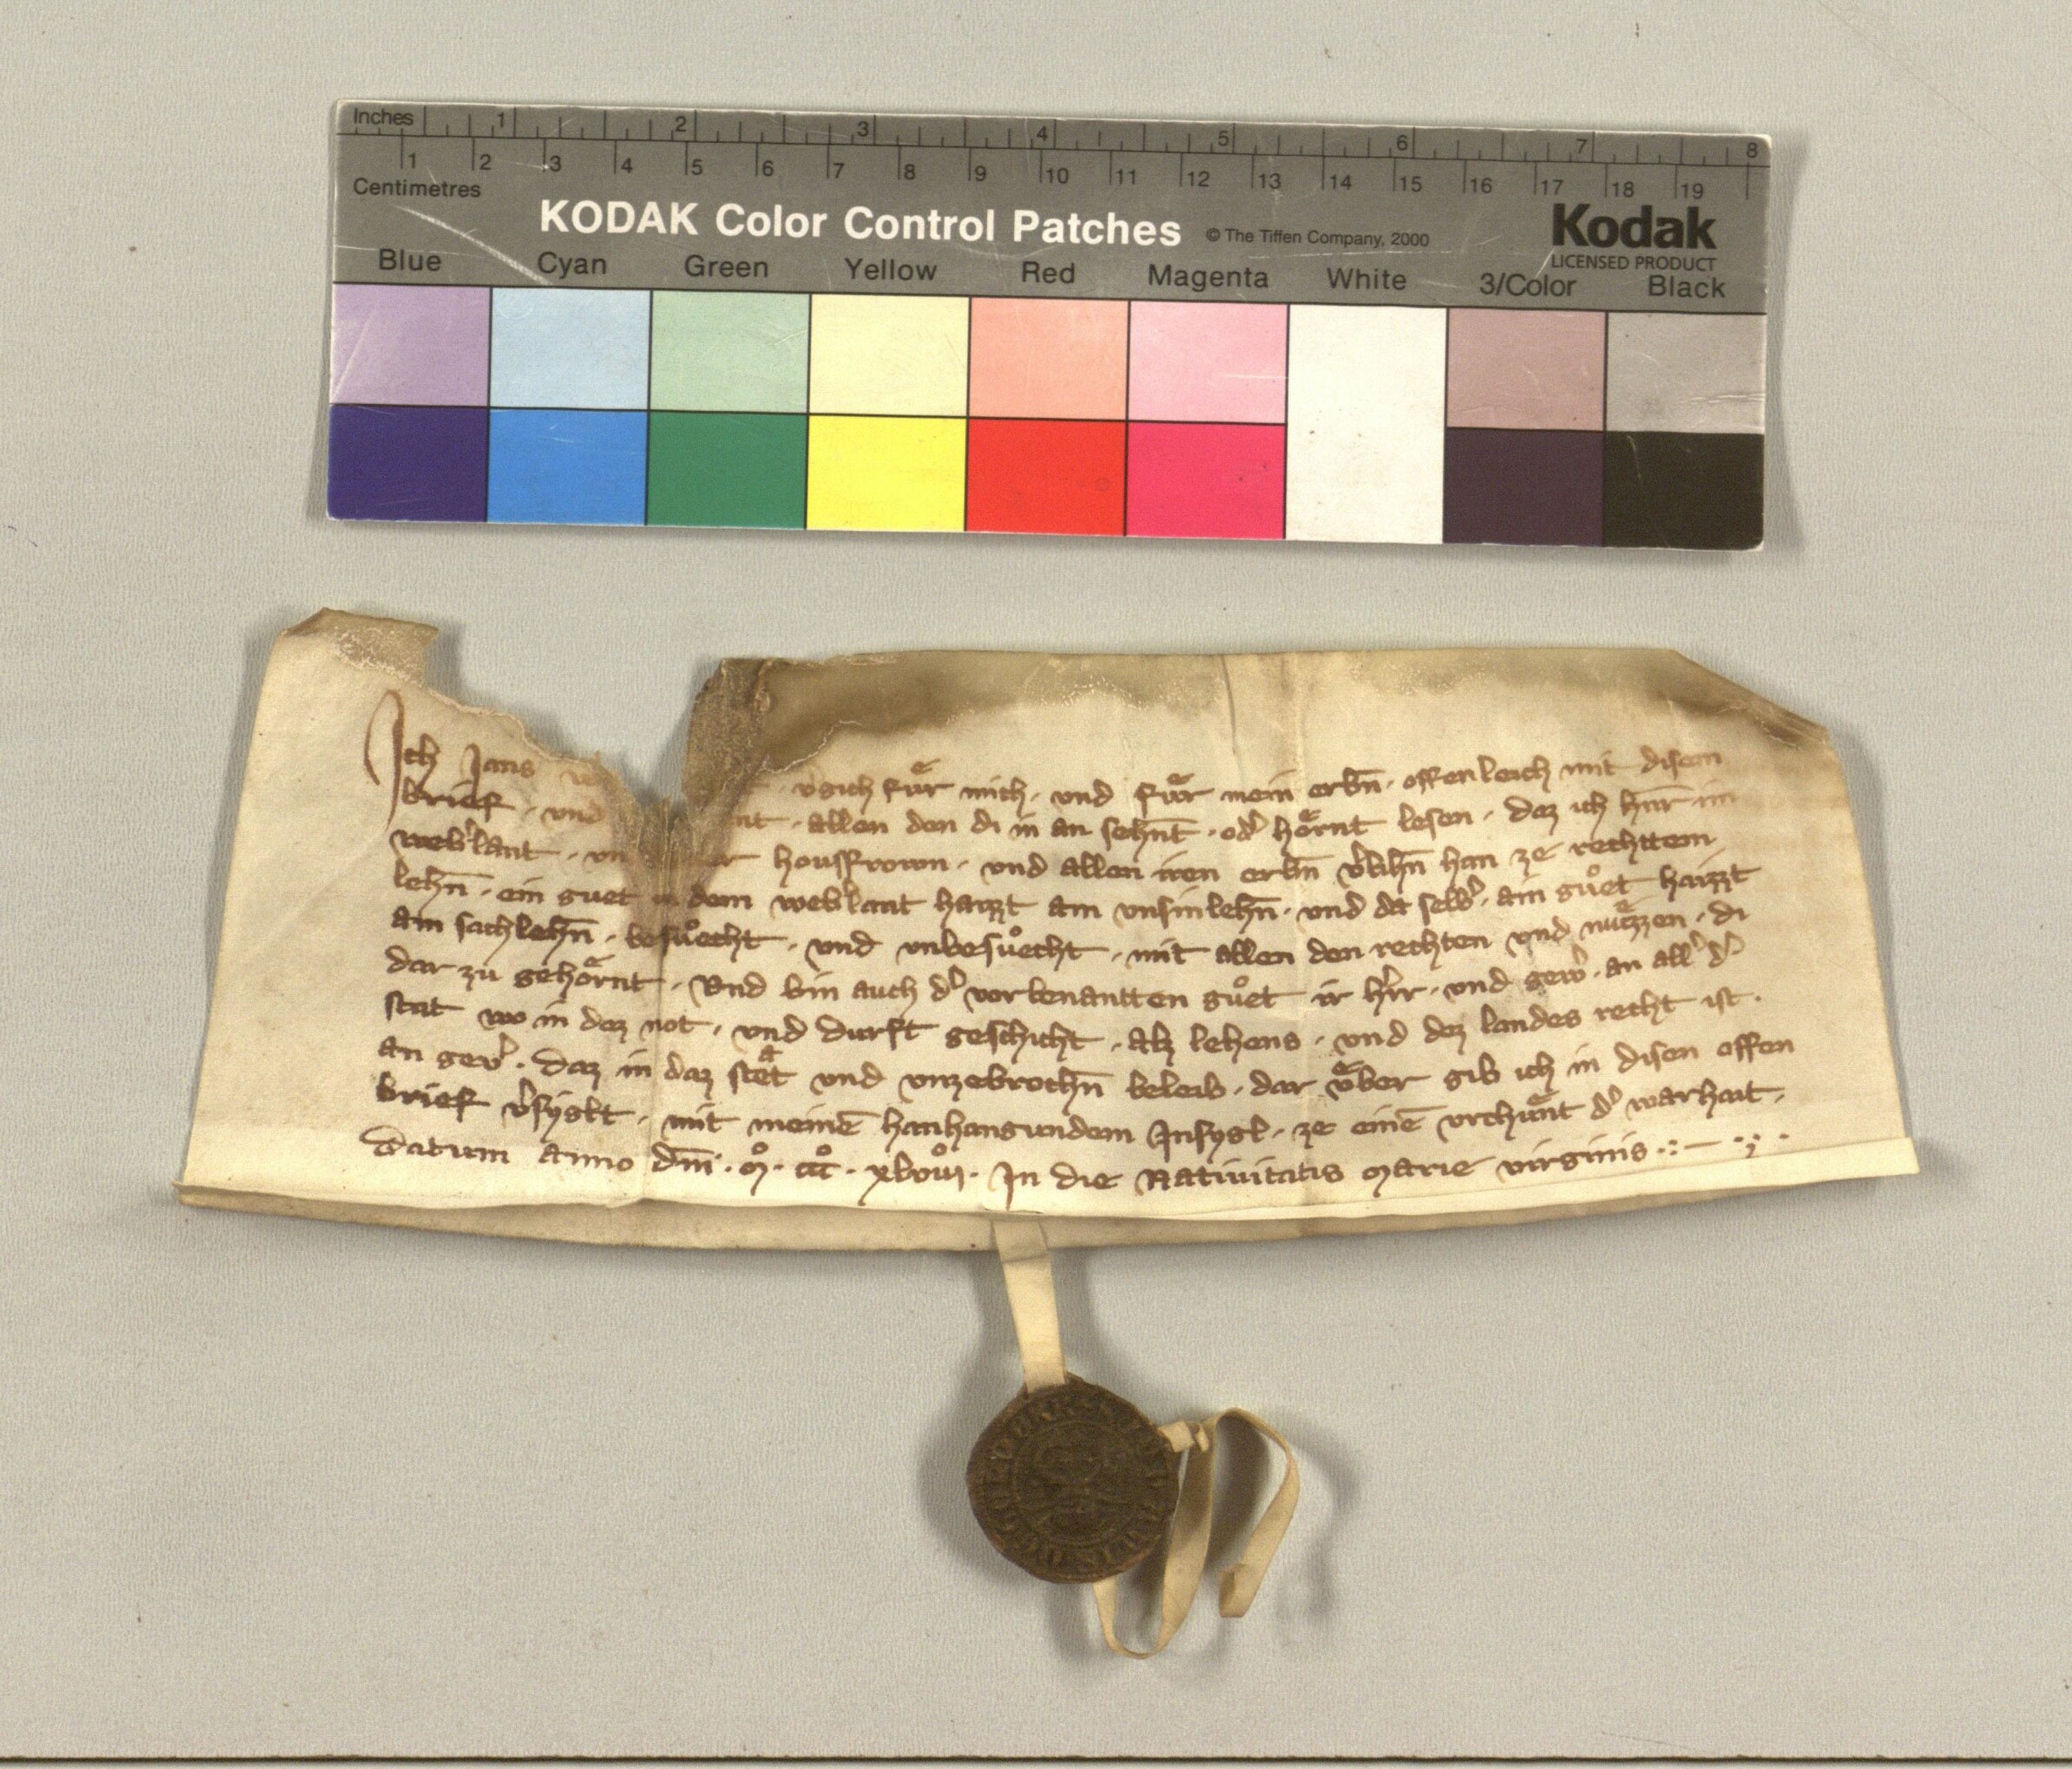 Inches 1 2 3 4 5 6 7 8
1 2 3 4 5 6 7 8 9 10 11 12 13 14 15 16 17 18 19
Centimetres
KODAK Color Control Patches © The Tiffen Company, 2000 Kodak
LICENSED PRODUCT
Blue Cyan Green Yellow Red Magenta White 3/Color Black
Ich Jans v᾽gich fuͤr mich · und fuͤr mein erbn̄ · offenleich mit disem
brief · und allen den di in an sehn̄t · od᾽ hoͤrnt lesen · daz ich
web᾽lant · housfrown · und allen iren erbn̄ v᾽lihn̄ han ze rechttem
lehn̄ · ein guet in dem web᾽lant haizzt am unsinlehn̄ · und da selb᾽ · ain guͦet haizzt
am sachlehn̄ · besuͦecht · und unbesuͦecht · mit allen den rechten und nuͤczzen · di
dar zu gehoͤrnt · Und bin auch d᾽ vorbenantten guͦet ir h᾽rr · und gew᾽ · an all᾽ d᾽
stat wo in dez not · und durft geschicht · alz lehens · und dez landes recht ist ·
an gev᾽ · Daz in daz staͤt und unzebrochn̄ beleib · dar uͤber gib ich in disen offen
brief v᾽sygelt · mit meinē hanhangundem Insygl · ze einē urchuͤnt d᾽ warhait ·
Datum anno dn̄i · mͦ · cccͦ · xlvͦiii · In die Nativitatis marie virginis ·:— ·;·